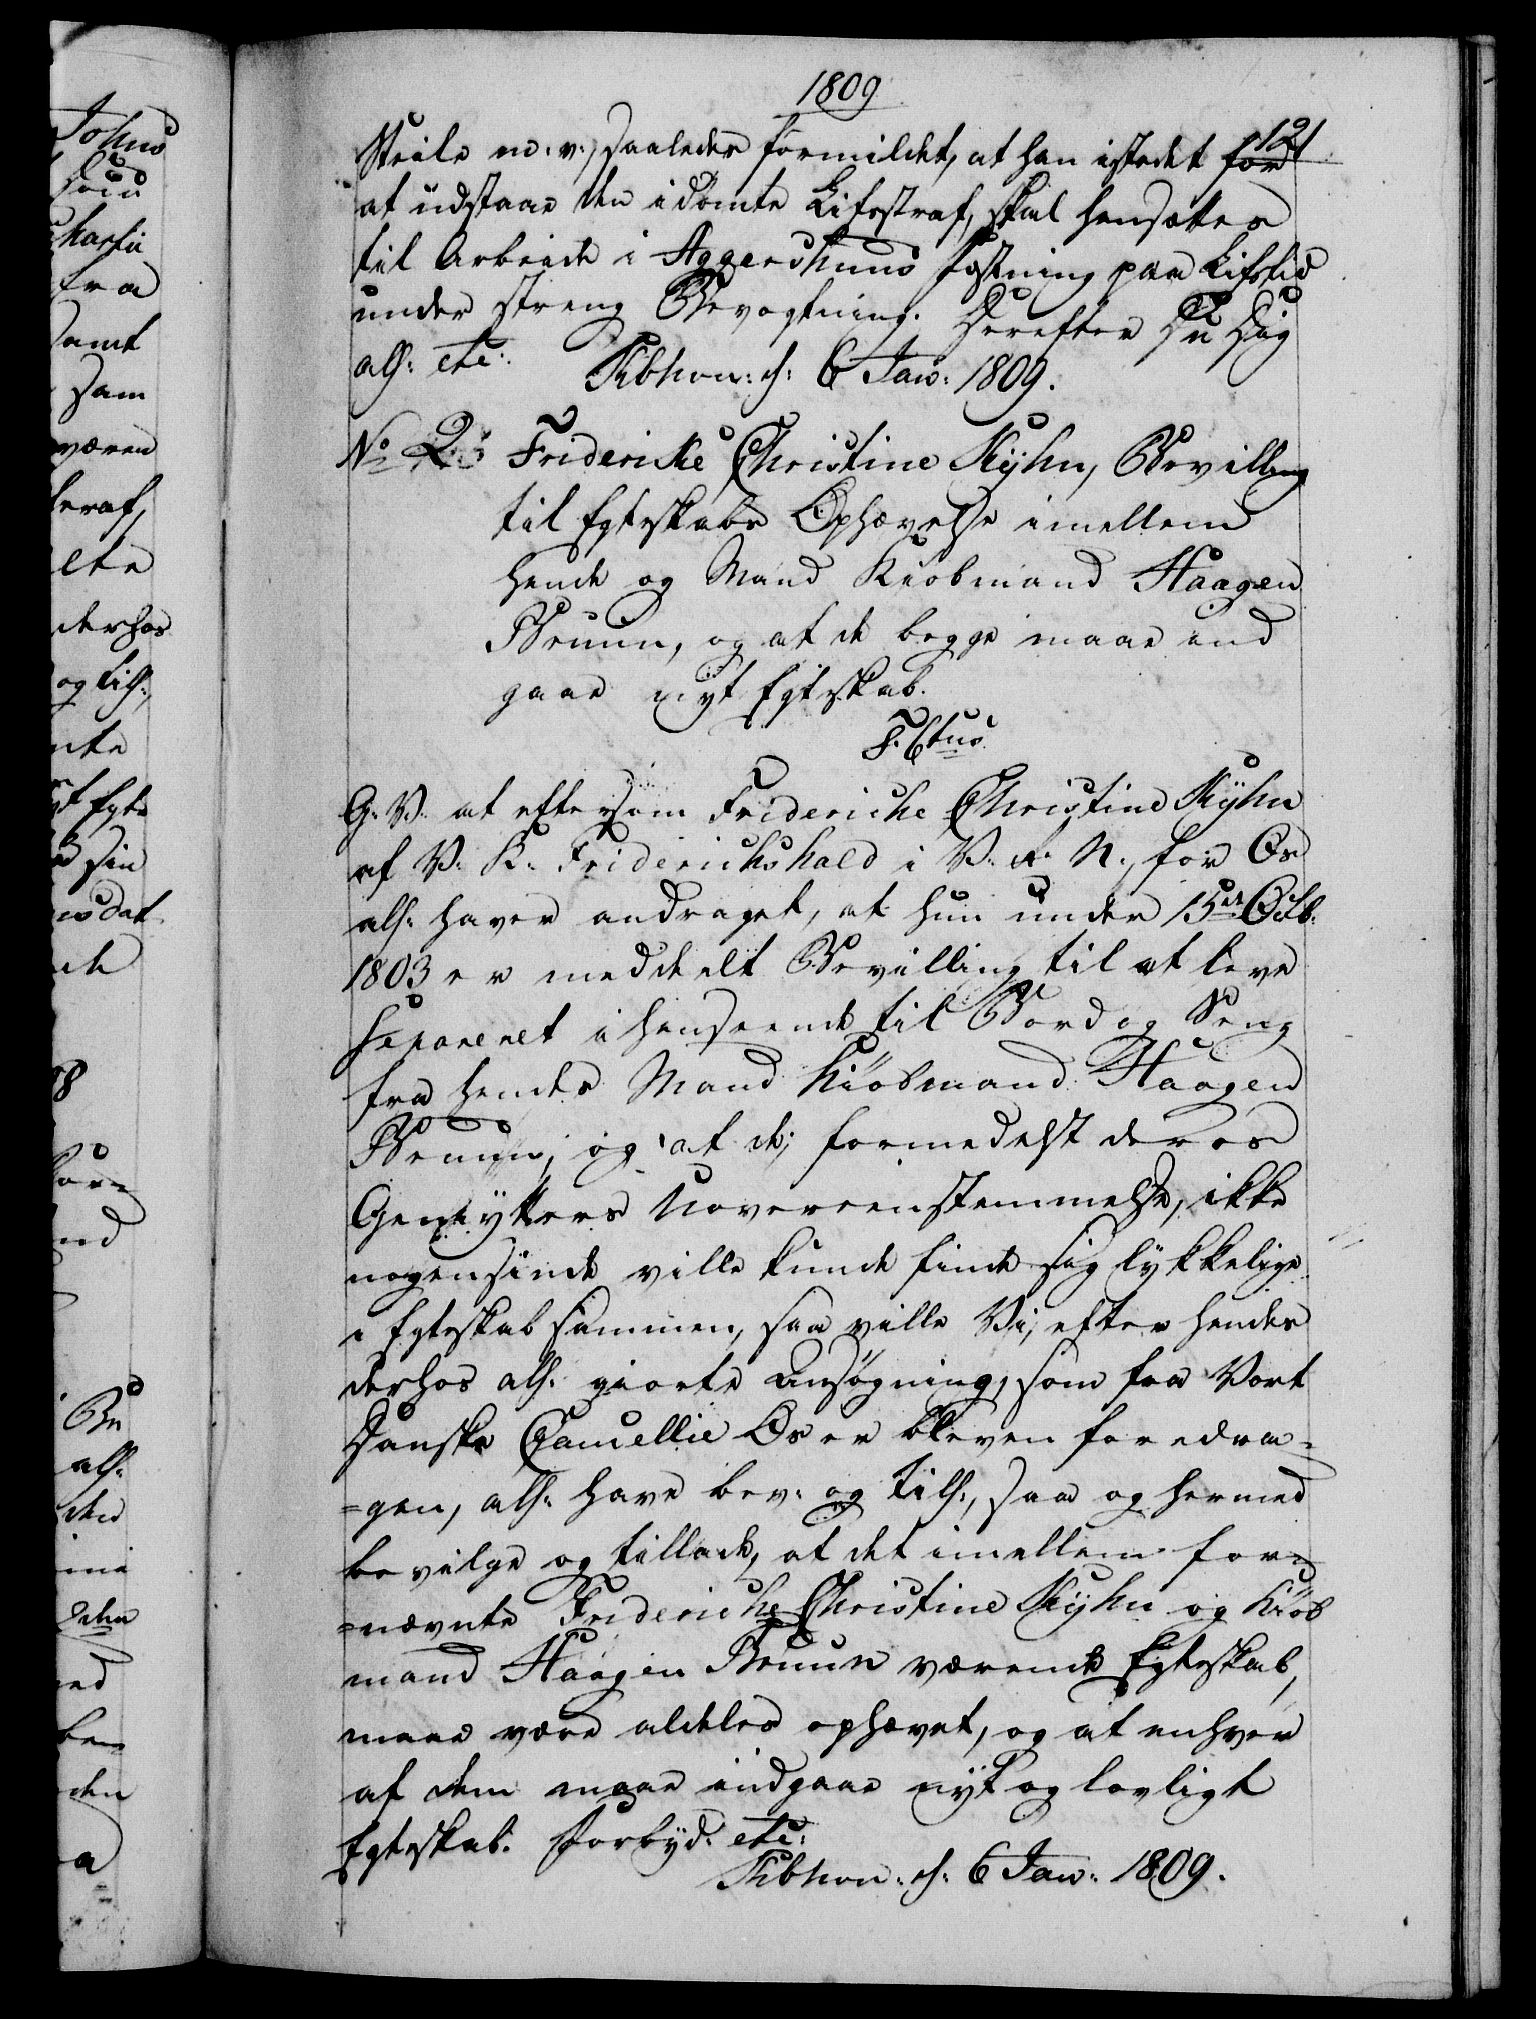 1809
121
Steile m: v:, saaledes formildet, at han istedet for
at udstaae den idømte Livsstraf, skal hensættes
til Arbeide i Aggershuus Fæstning paa Livstid
under streng Bevogtning. Herefter Du Dig
all: etc: Kbhvn: d: 6 Jan: 1809.
No 2. Friderike Christine Kyhn, Bevilling
til Egteskabs Ophævelse imellem
hende og Mand Kiøbmand Haagen
Bruun, og at de begge maae ind
gaae nyt Egteskab.
F. 6tus
G. V. at eftersom Frideriche Christine Kÿhn
af V. K. Friderichshald i V. R. N., for Os
all: haver andraget, at hun under 15de Octb:
1803 er meddeelt Bevilling til at leve
separeret i henseende til Bord og Seng
fra hendes Mand Kiöbmand Haagen
Bruun, og at de, formedelst deres
Gemytters Uovereensstemmelse, ikke
nogensinde ville kunde finde sig lykkelige
i Egteskab sammen, saa ville Vi, efter hendes
derhos all: giorte Ansøgning, som fra Vort
Danske Cancellie Os er bleven foredra=
=gen, all: have bev: og till:, saa og hermed
bevilge og tillade, at det imellem for=
=nævnte Frideriche Christine Kÿhn og Kiöb
mand Haagen Bruun værende Egteskab,
maae være aldeles ophævet, og at enhver
af dem maae indgaae nÿt og lovligt
Egteskab. Forbÿd: etc:
Kbhvn: d: 6 Jan: 1809.